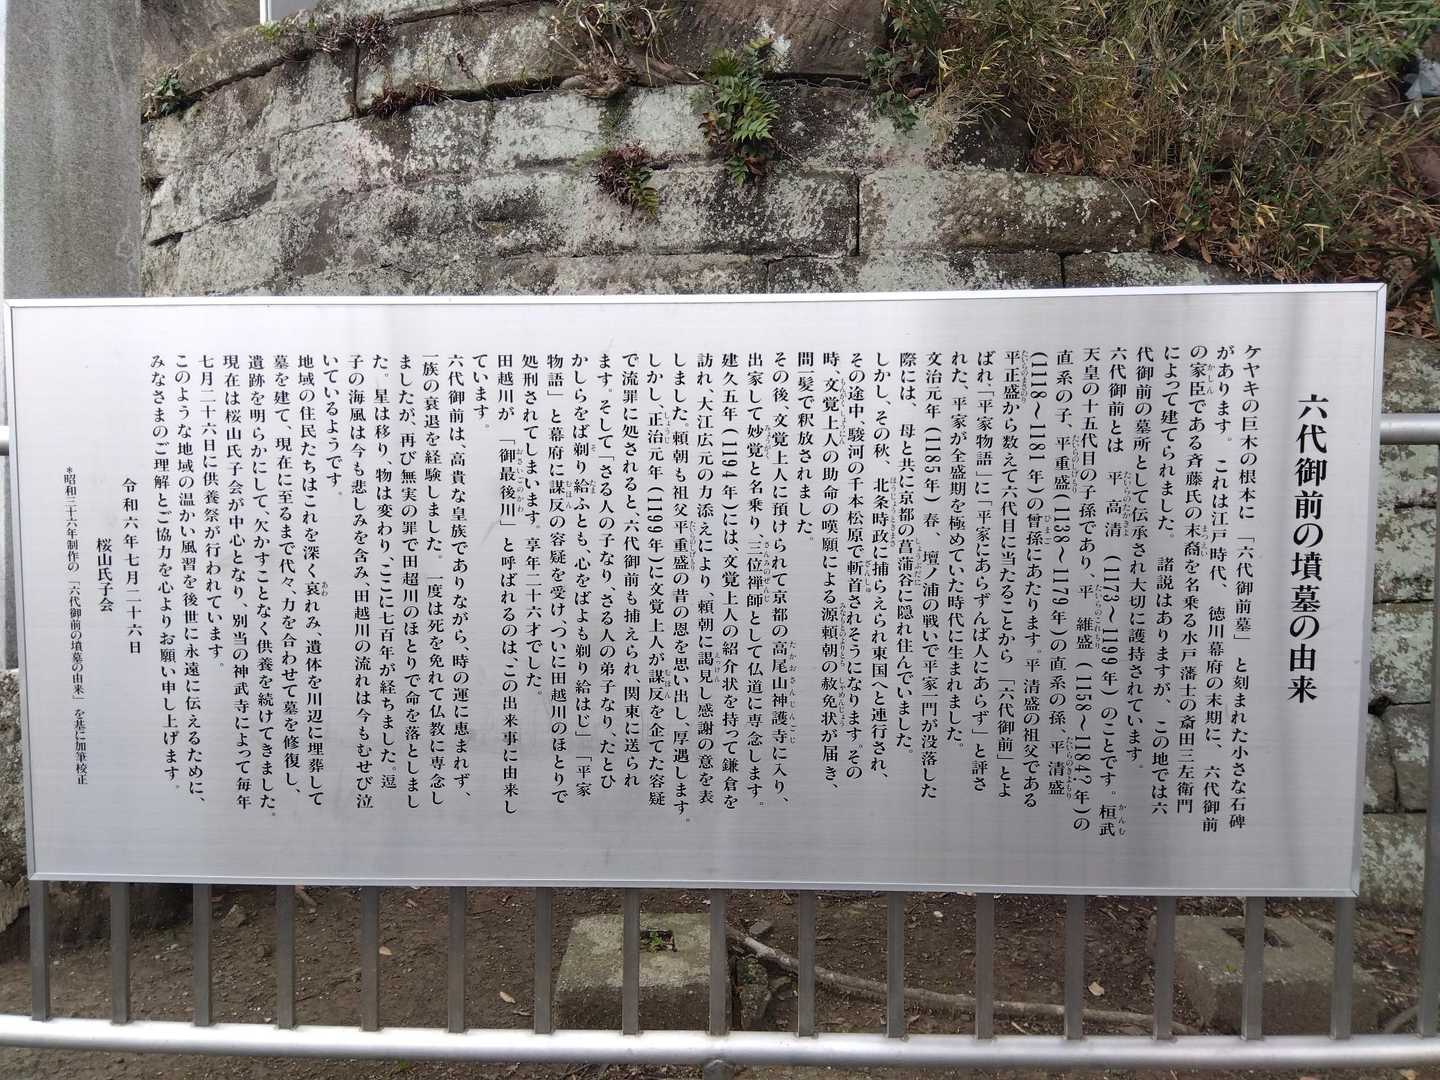 六代御前の墳墓の由来
ケヤキの巨木の根本に「六代御前墓」と刻まれた小さな石碑
があります。これは江戸時代、徳川幕府の末期に、六代御前
の家臣である斉藤氏の末裔を名乗る水戸藩士の斎田三左衛門
によって建てられました。諸説はありますが、この地では六
代御前の墓所として伝承され大切に護持されています。
六代御前とは 平 高清 (1173～1199年) のことです。桓武
天皇の十五代目の子孫であり、平 維盛 (1158～1184?年) の
直系の子、平重盛(1138～1179年)の直系の孫、平清盛
(1118～1181年)の曾孫にあたります。平清盛の祖父である
平正盛から数えて六代目に当たることから「六代御前」とよ
ばれ、「平家物語」に「平家にあらずんば人にあらず」と評さ
れた、平家が全盛期を極めていた時代に生まれました。
文治元年(1185年)春、壇ノ浦の戦いで平家一門が没落した
際には、母と共に京都の菖蒲谷に隠れ住んでいました。
しかし、その秋、北条時政に捕らえられ東国へと連行され、
その途中、駿河の千本松原で斬首されそうになります。その
時、文覚上人の助命の嘆願による源頼朝の赦免状が届き、
間一髪で釈放されました。
その後、文覚上人に預けられて京都の高尾山神護寺に入り、
出家して妙覚と名乗り、三位禅師として仏道に専念します。
建久五年(1194年)には、文覚上人の紹介状を持って鎌倉を
訪れ、大江広元の力添えにより、頼朝に謁見し感謝の意を表
しました。頼朝も祖父平重盛の昔の恩を思い出し、厚遇します。
しかし、正治元年(1199年)に文覚上人が謀反を企てた容疑
で流罪に処されると、六代御前も捕えられ、関東に送られ
ます。そして「さる人の子なり、さる人の弟子なり、たとひ
かしらをば剃り給ふとも、心をばよも剃り給はじ」「平家
物語」と幕府に謀反の容疑を受け、ついに田越川のほとりで
処刑されてしまいます。享年二十六才でした。
田越川が「御最後川」と呼ばれるのは、この出来事に由来し
ています。
六代御前は、高貴な皇族でありながら、時の運に恵まれず、
一族の衰退を経験しました。一度は死を免れて仏教に専念し
ましたが、再び無実の罪で田越川のほとりで命を落としまし
た。星は移り、物は変わり、ここに七百年が経ちました。逗
子の海風は今も悲しみを含み、田越川の流れは今もむせび泣
いているようです。
地域の住民たちはこれを深く哀れみ、遺体を川辺に埋葬して
墓を建て、現在に至るまで代々、力を合わせて墓を修復し、
遺跡を明らかにして、欠かすことなく供養を続けてきました。
現在は桜山氏子会が中心となり、別当の神武寺によって毎年
七月二十六日に供養祭が行われています。
このような地域の温かい風習を後世に永遠に伝えるために、
みなさまのご理解とご協力を心よりお願い申し上げます。
令和六年七月二十六日
桜山氏子会
*昭和三十六年制作の「六代御前の墳墓の由来」を基に加筆校正